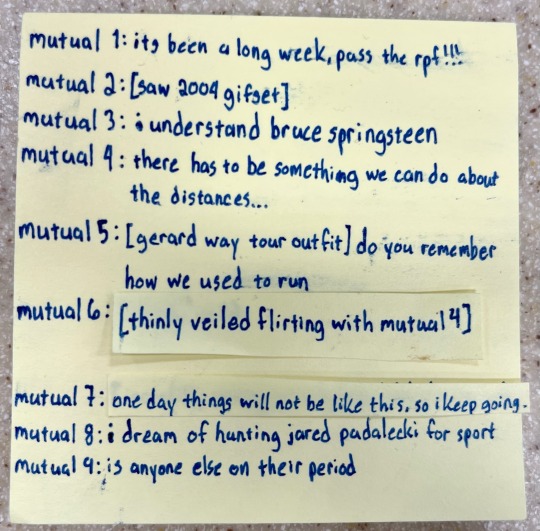 mutual 1: its been a long week, pass the rpf!!!
mutual 2: [saw 2004 gifset]
mutual 3: i understand bruce springsteen
mutual 4: there has to be something we can do about
the distances...
mutual 5: [gerard way tour outfit] do you remember
how we used to run
mutual 6: [thinly veiled flirting with mutual 4]
mutual 7: one day things will not be like this. so i keep going.
mutual 8: i dream of hunting jared padalecki for sport
mutual 9: is anyone else on their period